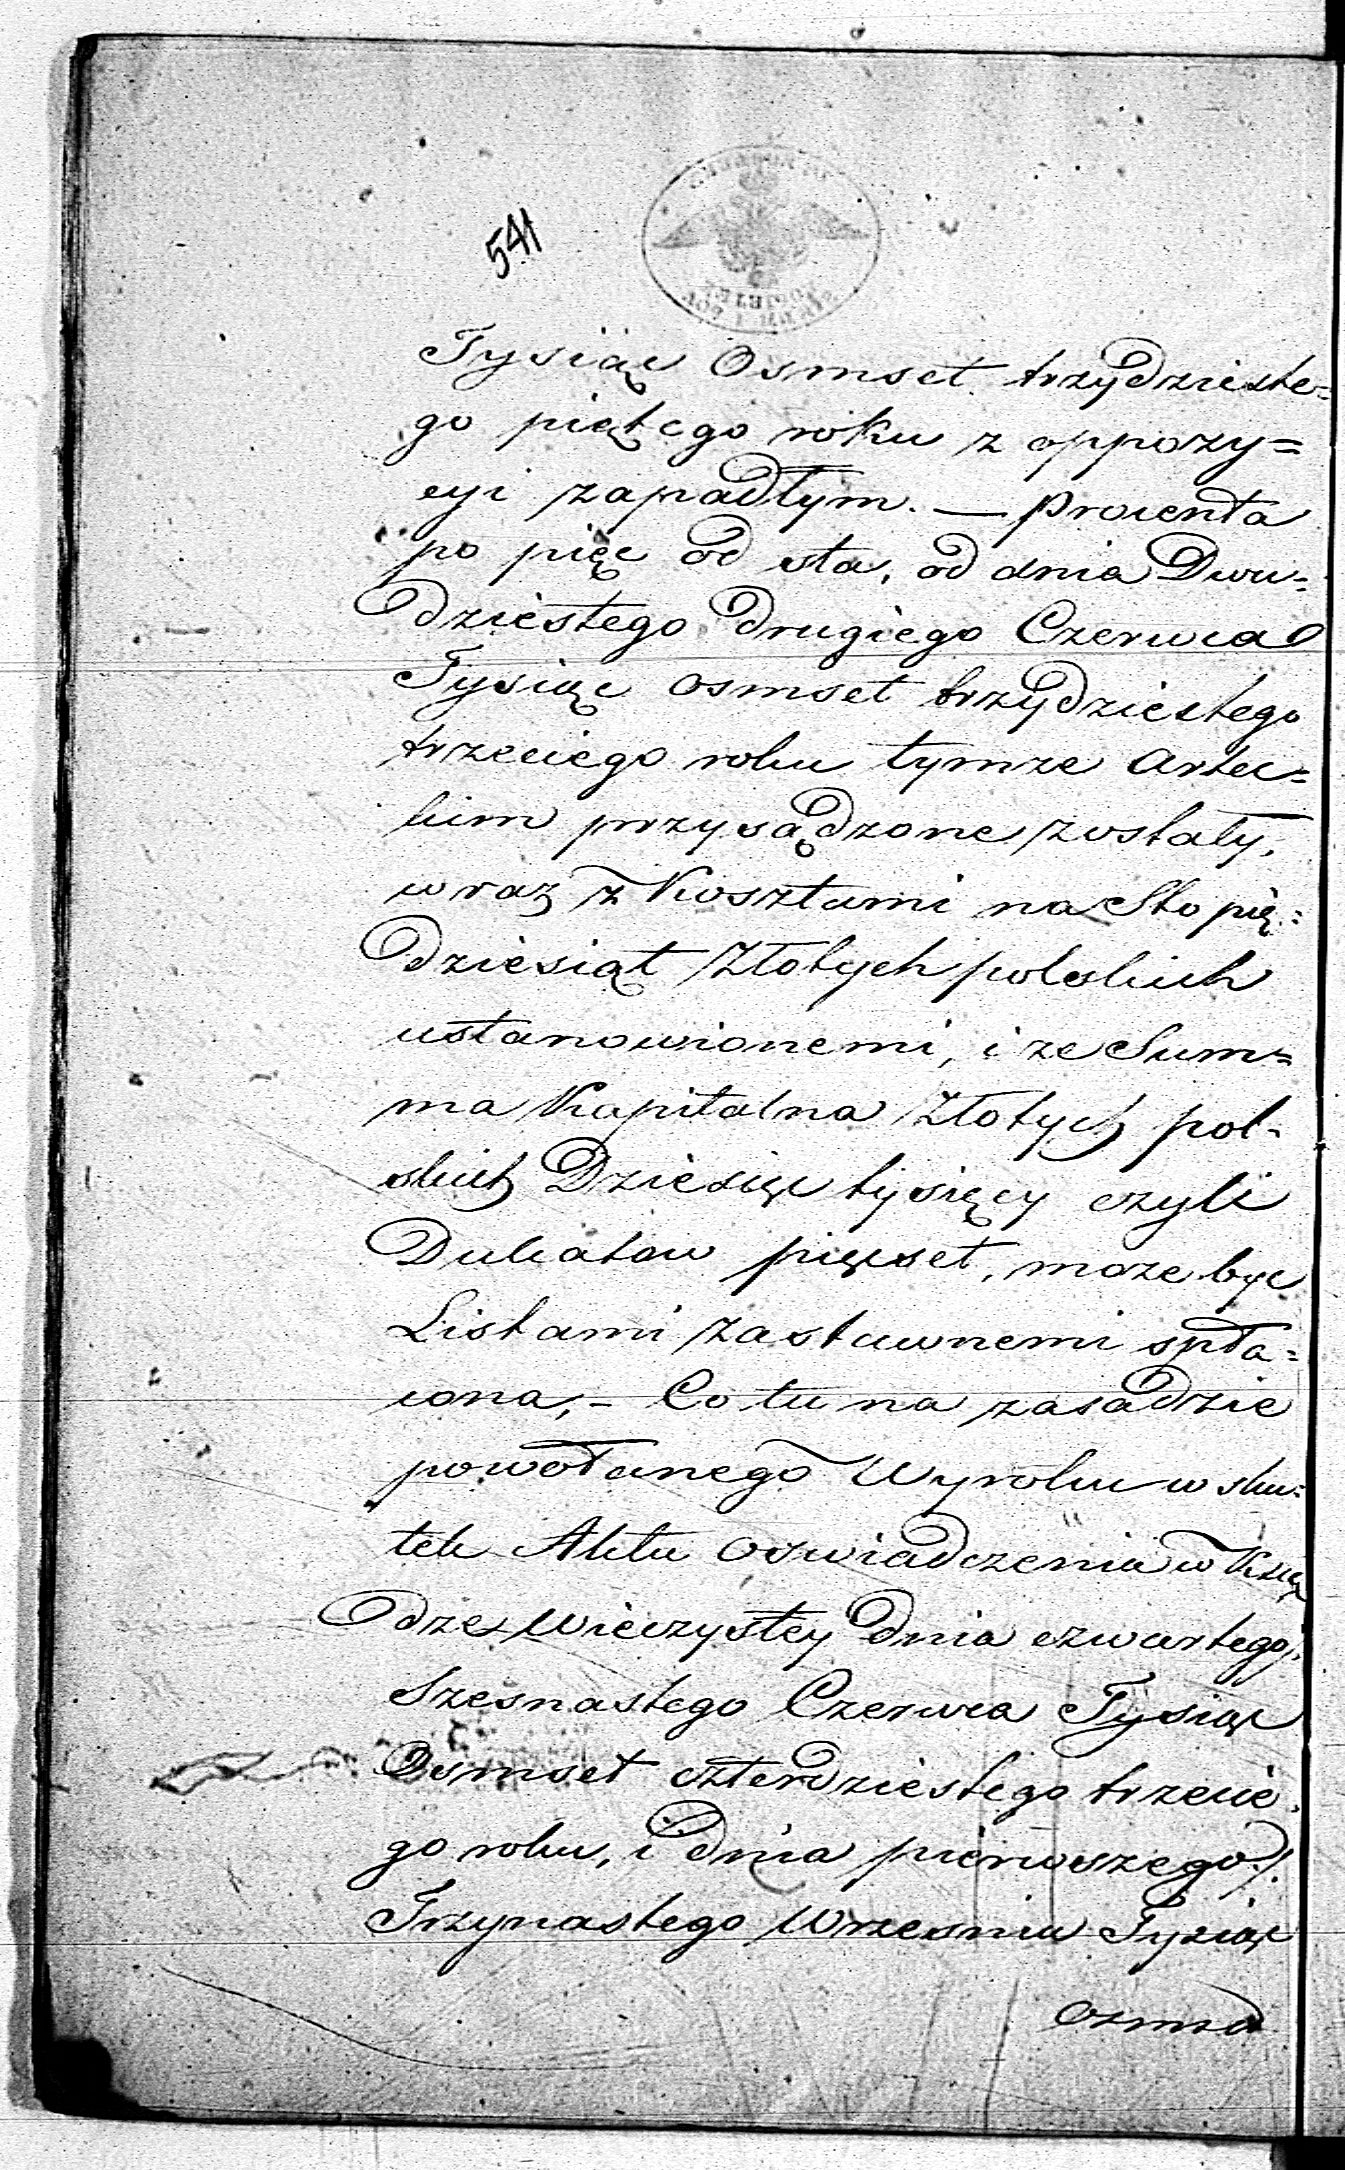 541
Tysiąc Osmset trzydzieste=
go piątego roku z oppozy=
cyi zapadłym. — Procenta
po pięć od sta, od dnia Dwu=
dziestego drugiego Czerwca
Tysiąc osmset trzydziestego
trzeciego roku tymze Artec=
kim przysądzone zostały,
wraz z Kosztami na Sto pię=
dziesiąt Złotych polskich
ustanowionemi, i ze Sum=
ma Kapitalna Złotych pol=
skich Dziesięć tysięcy czyli
Dukatow pięcset, moze byc
Listami zastawnemi spła=
cona, — Co tu na zasadzie
powołanego Wyroku w sku=
tek Aktu oswiadczenia w Księ
dze Wieczystey dnia czwartego/
Szesnastego Czerwca Tysiąc
Osmset czterdziestego trzecie
go roku, i dnia pierwszego/
Trzynastego Wrzesnia Tysiąc